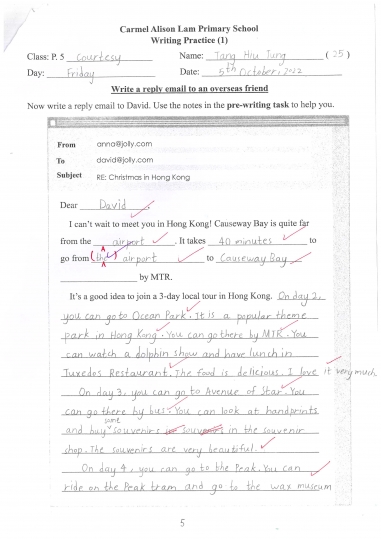 Carmel Alison Lam Primary School
Writing Practice (1)
Class: P. 5 Courtesy Name: Tang Hiu Tung (25)
Day: Friday Date: 5th October, 2012
Write a reply email to an overseas friend
Now write a reply email to David. Use the notes in the pre-writing task to help you.
From anna@jolly.com
To david@jolly.com
Subject RE: Christmas in Hong Kong
Dear David,
I can't wait to meet you in Hong Kong! Causeway Bay is quite far
from the airport. It takes 40 minutes to
go from (the) airport to Causeway Bay
by MTR.
It's a good idea to join a 3-day local tour in Hong Kong. On day 2,
you can go to Ocean Park. It is a popular theme
park in Hong Kong. You can go there by MTR. You
can watch a dolphin show and have lunch in
Tuxedos Restaurant. The food is delicious. I love it very much.
On day 3, you can go to Avenue of Star. You
can go there by bus. You can look at handprints
some
and buy souvenirs in the souvenir
shop. The souvenirs are very beautiful.
On day 4, you can go to the Peak. You can
ride on the Peak tram and go to the wax museum
5